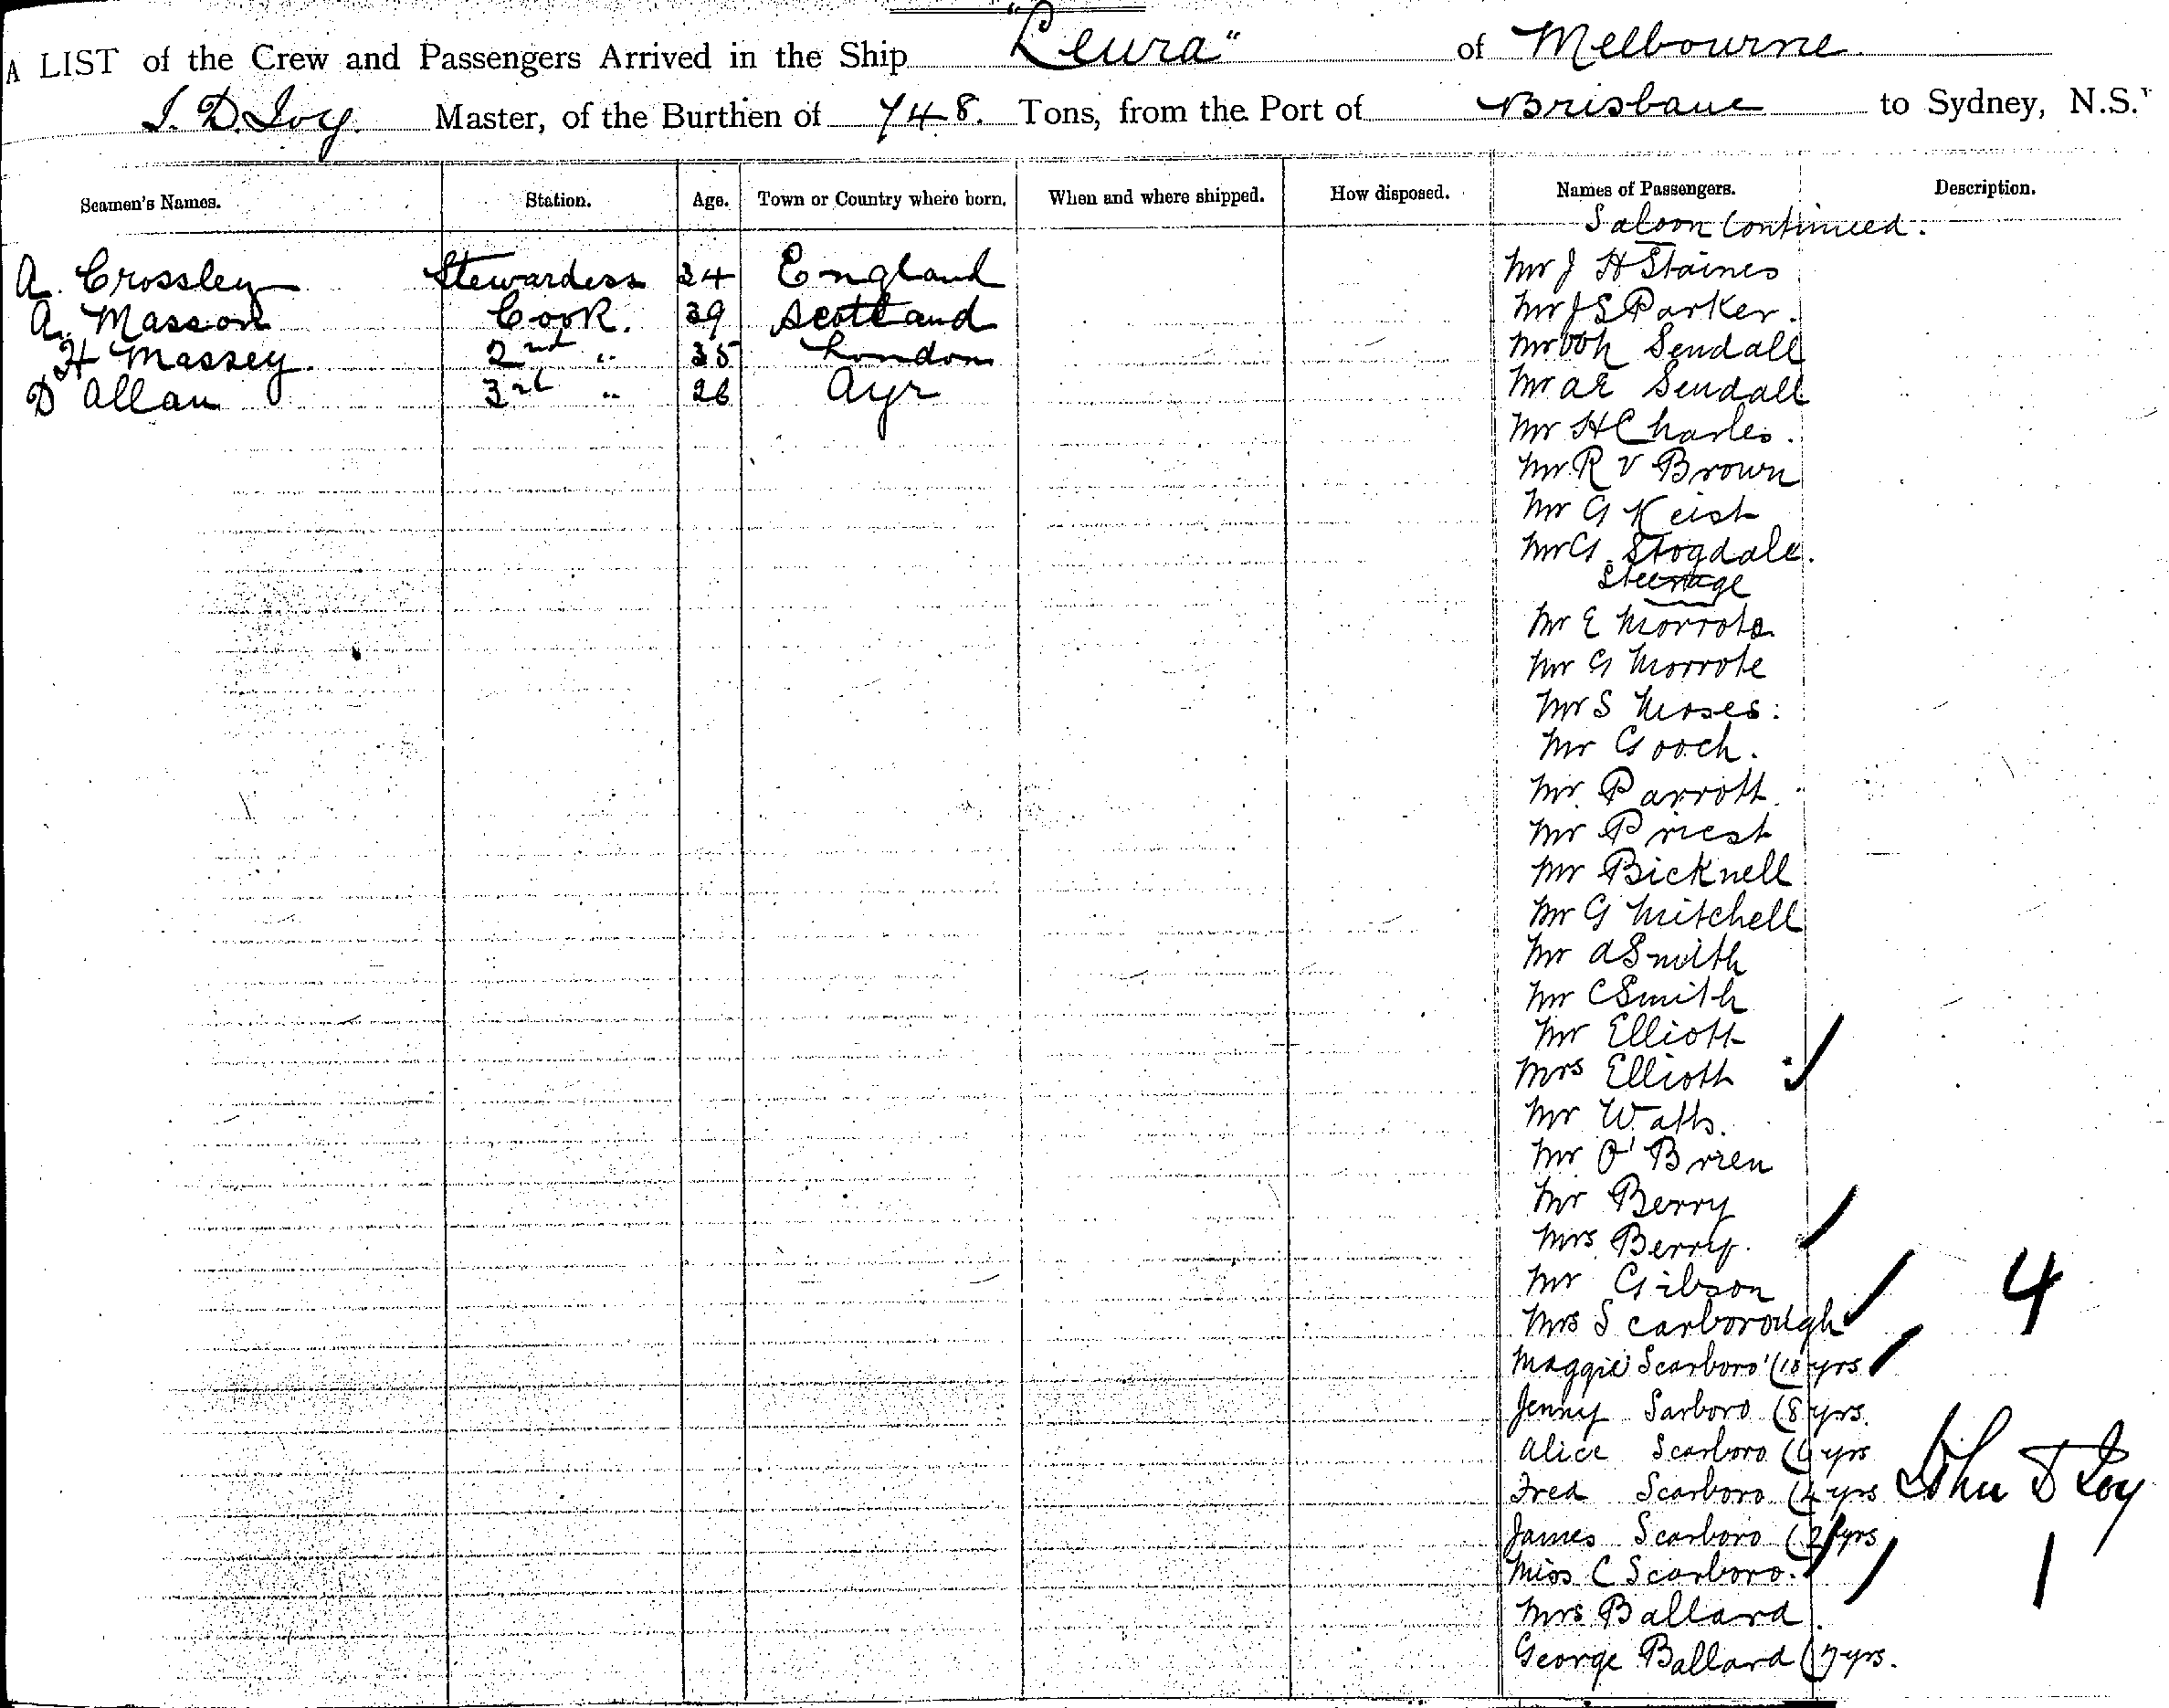 A LIST of the Crew and Passengers Arrived in the Ship "Leura" of Melbourne
J. D. Joy. Master, of the Burthen of 748. Tons, from the Port of Brisbane to Sydney, N.S.
Seamen's Names. Station. Age. Town or Country where born. When and where shipped. How disposed. Names of Passengers. Description.
Saloon Continued.
A. Crossley Stewardess 34 England Mr J H Staines
A. Masson Cook. 39 Scotland Mr J S Parker.
H Massey. 2nd " 35 London Mr Sendall
D Allan 3rd " 26 Ayr Mr A E Sendall
Mr H Charles.
Mr R V Brown
Mr G Keish
Mr G Stogdale.
Steerage
Mr E Morrote
Mr G Morrote
Mr S Moses.
Mr Gooch.
Mr Parrott.
Mr Priest
Mr Bicknell
Mr G Mitchell
Mr A Smith
Mr C Smith
Mr Elliott
Mrs Elliott
Mr Watts.
Mr O'Brien
Mr Berry
Mrs Berry.
Mr Gibson 4
Mrs Scarborough
Maggie Scarboro' (10 yrs
Jenny Sarboro (8 yrs.
Alice Scarboro (6 yrs
Fred Scarboro (4 yrs John D Joy
James Scarboro (2 yrs
Miss C Scarboro. 1
Mrs Ballard
George Ballard (7 yrs.